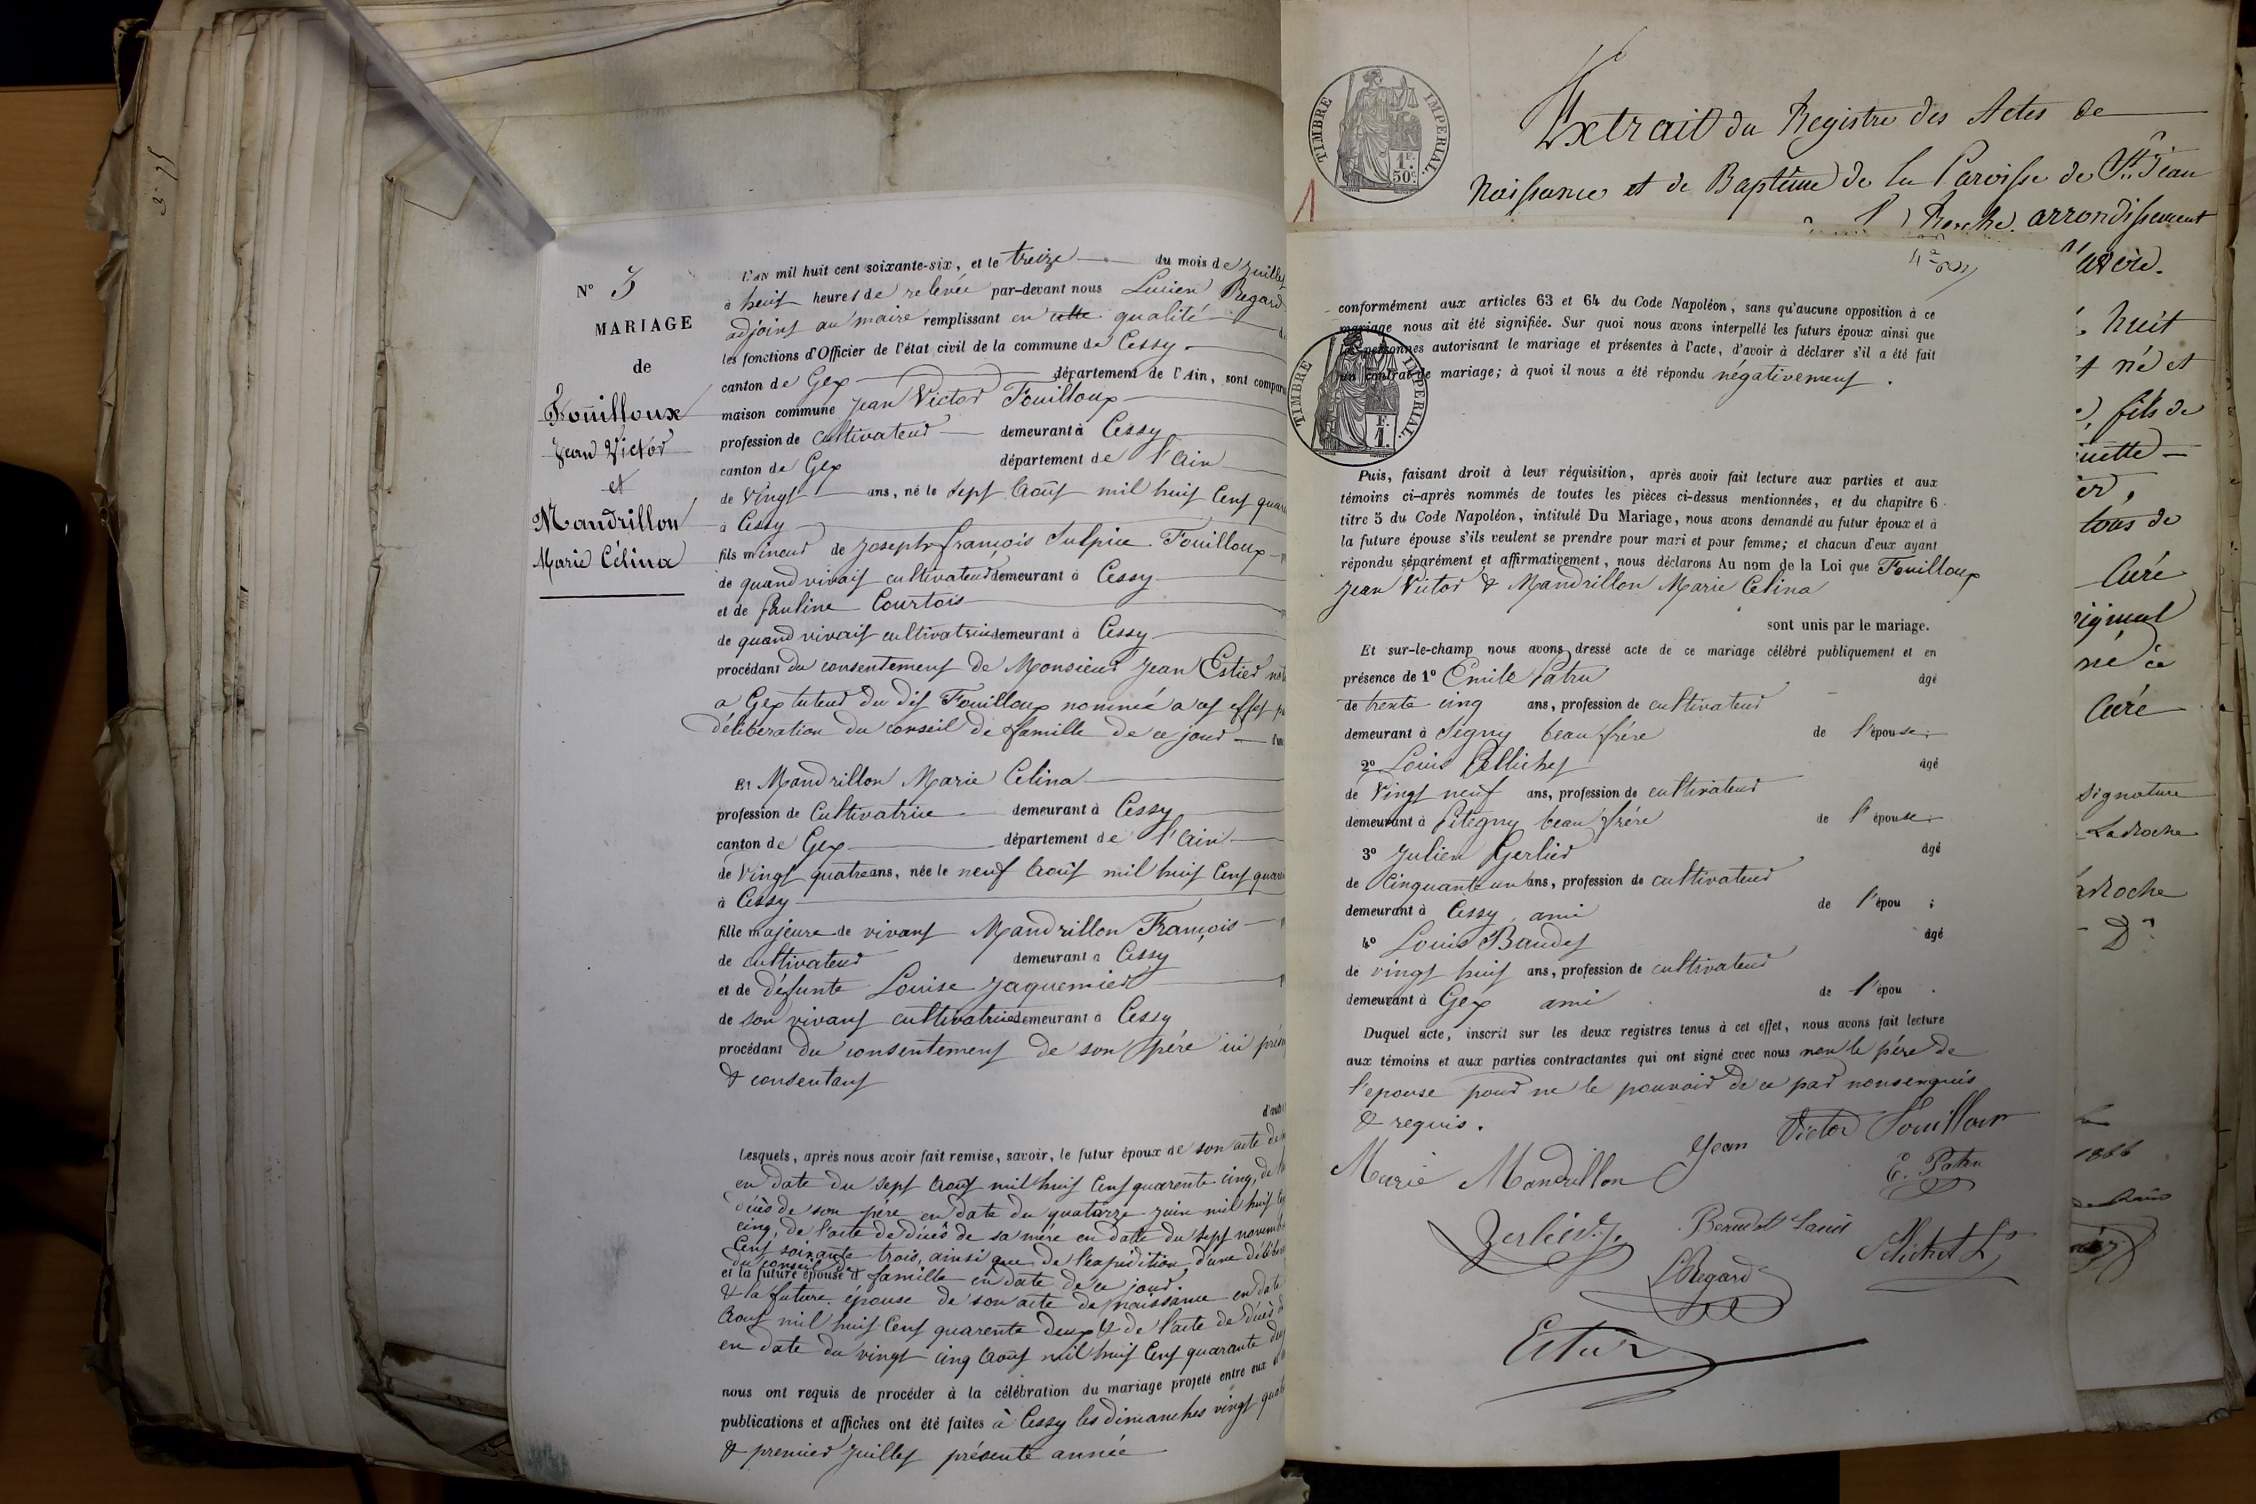 N° 3
MARIAGE
de
Fouilloux
Jean Victor
et
Mandrillon
Marie Célina
L'AN mil huit cent soixante-six, et le treize du mois de juillet
à heures de relevée par-devant nous Lucien Regard
adjoint au maire remplissant en cette qualité
les fonctions d'Officier de l'état civil de la commune de Cessy
canton de Gex département de l'Ain, sont compar
maison commune Jean Victor Fouilloux
profession de cultivateur demeurant à Cessy
canton de Gex département de l'Ain
de vingt ans, né le sept Août mil huit Cent quar
à Cessy
fils mineur de Joseph françois Sulpice Fouilloux
de quand vivait cultivateur demeurant à Cessy
et de Pauline Courtois
de quand vivait cultivatrice demeurant à Cessy
procédant du consentement de Monsieur Jean Estier
a Gex tuteur du dit Fouilloux nommé a cet effet
délibération du conseil de famille de ce jour
Et Mandrillon Marie Celina
profession de Cultivatrice demeurant à Cessy
canton de Gex département de l'Ain
de vingt quatre ans, née le neuf Août mil huit Cent quar
à Cessy
fille majeure de vivant Mandrillon François
de cultivateur demeurant à Cessy
et de défunte Louise Jaquemier
de son vivant cultivatrice demeurant à Cessy
procédant du consentement de son père ici
& consentant
Lesquels, après nous avoir fait remise, savoir, le futur époux de son acte de
en date du sept Août mil huit Cent quarente cinq, de
décès de son père en date du quatorze juin mil huit
cinq, de l'acte de décès de sa mère en date du sept novemb
Cent soixante trois, ainsi que de l'expédition d'une délibé
du conseil de
et la future épouse d famille en date de ce jour.
& la future épouse de son acte de naissance en date
Aout mil huit Cent quarente deux & de l'acte de décès
en date du vingt cinq Aout mil huit Cent quarante
nous ont requis de procéder à la célébration du mariage projeté entre eux
publications et affiches ont été faites à Cessy les dimanches vingt
& premier juillet présente année
TIMBRE IMPERIAL.
1F.
50C.
Extrait du Registre des Actes de
Naissance et de Baptême de la Paroisse de St. Jean
Roche. arrondissement
conformément aux articles 63 et 64 du Code Napoléon, sans qu'aucune opposition à ce
mariage nous ait été signifiée. Sur quoi nous avons interpellé les futurs époux ainsi que
les personnes autorisant le mariage et présentes à l'acte, d'avoir à déclarer s'il a été fait
un contrat de mariage; à quoi il nous a été répondu négativement.
TIMBRE IMPERIAL.
F.
1.
Puis, faisant droit à leur réquisition, après avoir fait lecture aux parties et aux
témoins ci-après nommés de toutes les pièces ci-dessus mentionnées, et du chapitre 6
titre 5 du Code Napoléon, intitulé Du Mariage, nous avons demandé au futur époux et à
la future épouse s'ils veulent se prendre pour mari et pour femme; et chacun d'eux ayant
répondu séparément et affirmativement, nous déclarons Au nom de la Loi que Fouilloux
Jean Victor & Mandrillon Marie Celina
sont unis par le mariage.
Et sur-le-champ nous avons dressé acte de ce mariage célébré publiquement et en
présence de 1° Emile Patru âgé
de trente cinq ans, profession de cultivateur
demeurant à Segny beau frére de l'épouse
2° Louis Pellichet âgé
de vingt neuf ans, profession de cultivateur
demeurant à Pitegny beau frére de l'épouse
3° Julien Gerlier âgé
de Cinquante un ans, profession de cultivateur
demeurant à Cessy ami de l'épou ;
4° Louis Baudet âgé
de vingt huit ans, profession de cultivateur
demeurant à Gex ami de l'épou .
Duquel acte, inscrit sur les deux registres tenus à cet effet, nous avons fait lecture
aux témoins et aux parties contractantes qui ont signé avec nous non le père de
l'epouse pour ne le pouvoir de ce par nous enquis
& requis.
Marie Mandrillon
Jean Victor Fouilloux
E. Patru
L Regard
huit
né et
fils de
Curé
Curé
signature
LaRoche
Roche
1866